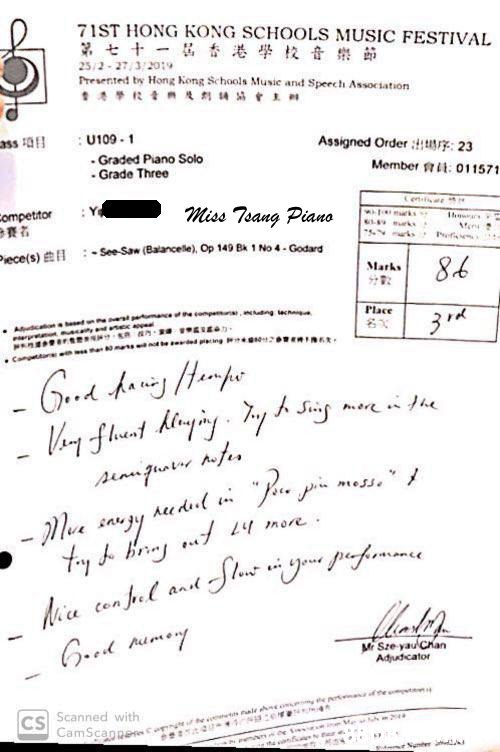 71ST HONG KONG SCHOOLS MUSIC FESTIVAL
第七十一屆香港學校音樂節
25/2 - 27/3/2019
Presented by Hong Kong Schools Music and Speech Association
香港學校音樂及朗誦協會主辦
ass 項目 : U109 - 1
Assigned Order 出場序: 23
- Graded Piano Solo
- Grade Three
Member 會員: 011571
ompetitor : Y
參賽者名
Miss Tsang Piano
Certificate
90-100 marks 分 Honours
80-89 marks 分 Merit
75-79 marks 分 Proficiency
Piece(s) 曲目 : ~ See-Saw (Balancelle), Op 149 Bk 1 No 4 - Godard
Marks 86
分數
Place 3rd
名次
• Adjudication is based on the overall performance of the competitor(s), including, technique,
interpretation, musicality and artistic appeal.
• Competitor(s) with less than 80 marks will not be awarded placing.
- Good pacing / tempo
- Very fluent playing. Try to sing more in the
semiquaver notes
- More energy needed in "Poco piu mosso" &
try to bring out LH more.
- Nice control and flow in your performance
- Good memory
Mr Sze-yau Chan
Adjudicator
copyright of the comments made above concerning the performance of the competitor(s)
CS Scanned with
CamScanner